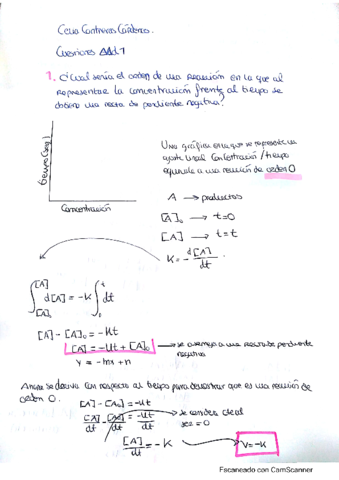 Celia Contreras Cárdenas.
Cuestiones AAd 1
1. ¿Cual sería el orden de una reacción en la que al
representar la concentración frente al tiempo se
obtiene una recta de pendiente negativa?
Una gráfica en la que se represente un
ajuste lineal concentración/tiempo
equivale a una reacción de orden 0
Concentración
A → productos
[A]₀ → t=0
[A] → t=t
K = - d[A]/dt
∫ d[A] = -K ∫ dt
[A] - [A]₀ = -Kt
[A] = -Kt + [A]₀ → se asemeja a una recta de pendiente
negativa
y = -mx + n
Ahora se deriva con respecto al tiempo para demostrar que es una reacción de
orden 0.
[A] - [A₀] = -Kt
[A]/dt - [A₀]/dt = -Kt/dt → se considera ideal
= 0
[A]/dt = -K → V = -K
Escaneado con CamScanner